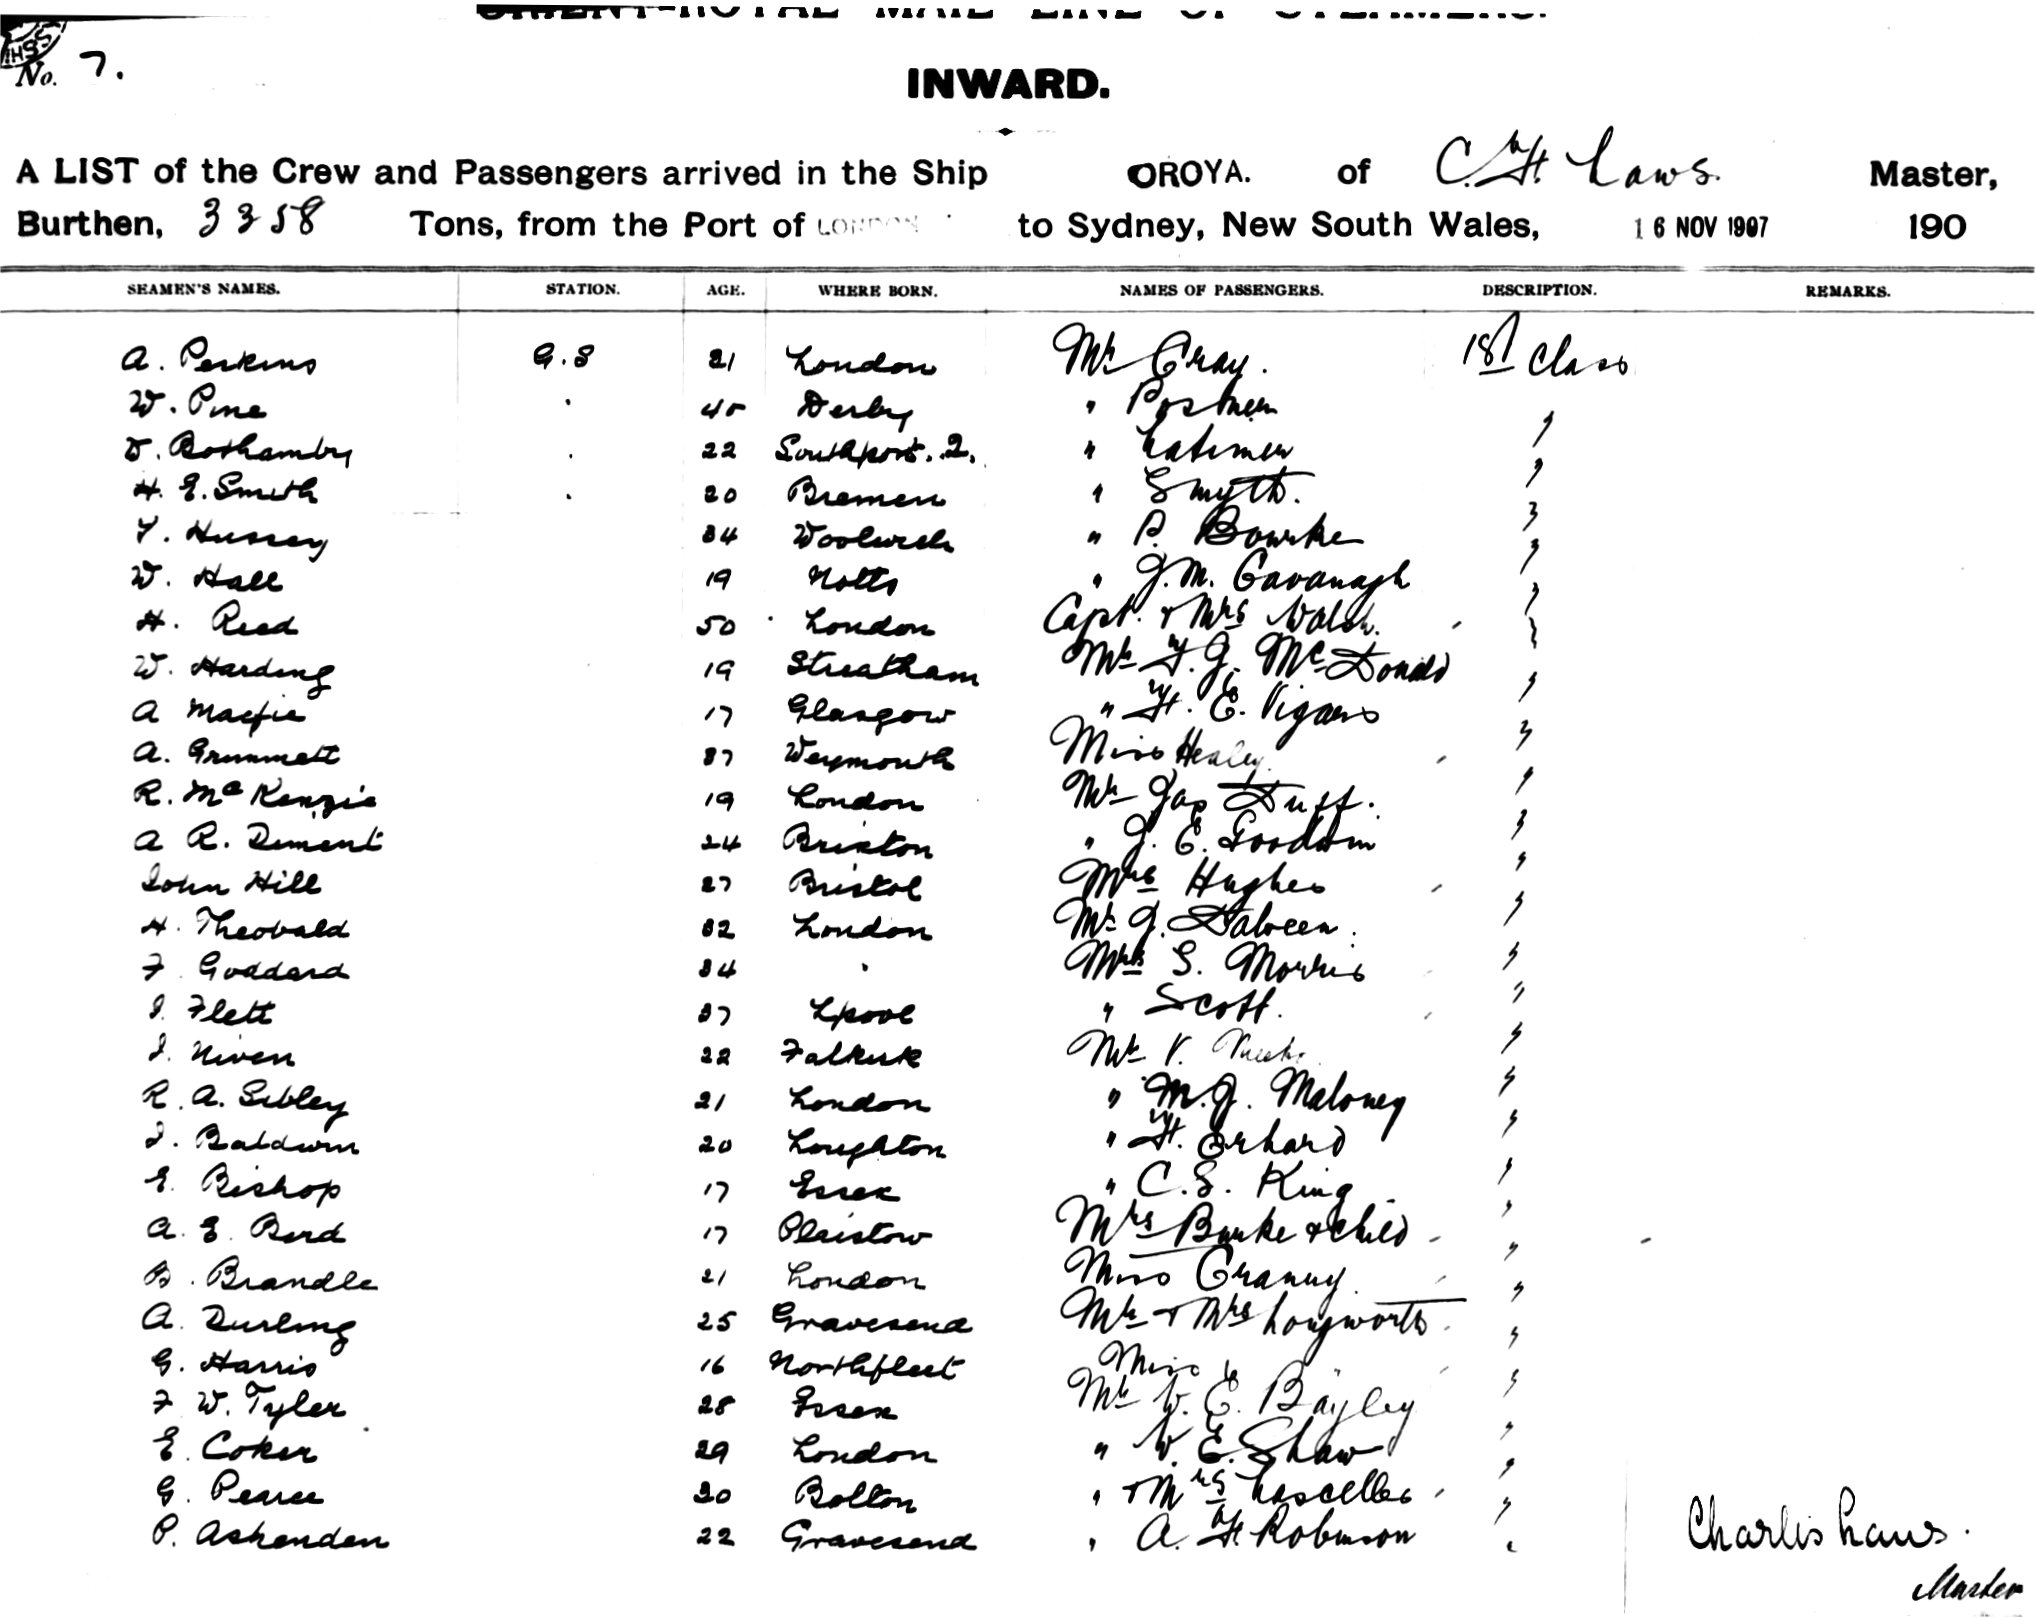 ORIENT-ROYAL MAIL LINE OF STEAMERS.
No. 7.
INWARD.
A LIST of the Crew and Passengers arrived in the Ship OROYA. of C. H. Laws. Master,
Burthen, 3358 Tons, from the Port of LONDON to Sydney, New South Wales, 16 NOV 1907 190
SEAMEN'S NAMES. STATION. AGE. WHERE BORN. NAMES OF PASSENGERS. DESCRIPTION. REMARKS.
A. Perkins G.S 21 London Mr Gray. 1st Class
W. Pine " 45 Derby " Postmen "
D. Bothamby " 22 Southport. Q. " Latimer "
H. E. Smith " 20 Bremen " Smyth. "
T. Hussey 34 Woolwich " P. Bourke "
W. Hall 19 Notts " J. M. Cavanagh "
H. Reed 50 London Capt. & Mrs Walsh. "
W. Harding 19 Streatham Mr T. J. McDonald "
A Macfie 17 Glasgow " H. E. Vigars "
A. Grummett 37 Weymouth Miss Healey. "
R. McKenzie 19 London Mr Jas Duff. "
A R. Dement 24 Brixton " J. E. Goodwin "
John Hill 27 Bristol Mrs Hughes "
H. Theobald 32 London Mr J. Dalveen. "
F Goddard 34 " Mrs S. Morris "
J. Flett 37 Lpool " Scott. "
J. Niven 22 Falkirk Mr V. "
R. A. Sibley 21 London " M. J. Maloney "
J. Baldwin 20 Loughton " H. Erhard "
E. Bishop 17 Essex " C. S. King "
A. E. Bird 17 Plaistow Mrs Burke & child "
B. Brandle 21 London Miss Cranny "
A. Durling 25 Gravesend Mr & Mrs Longworth "
G. Harris 16 Northfleet Miss " "
F W. Tyler 28 Essex Mr W. E. Bayley "
E. Coker 29 London " W. E. Shaw "
G. Pearce 20 Bolton " & Mrs Lascelles "
P. Ashenden 22 Gravesend " A. H Robinson "
Charles Laws.
Master